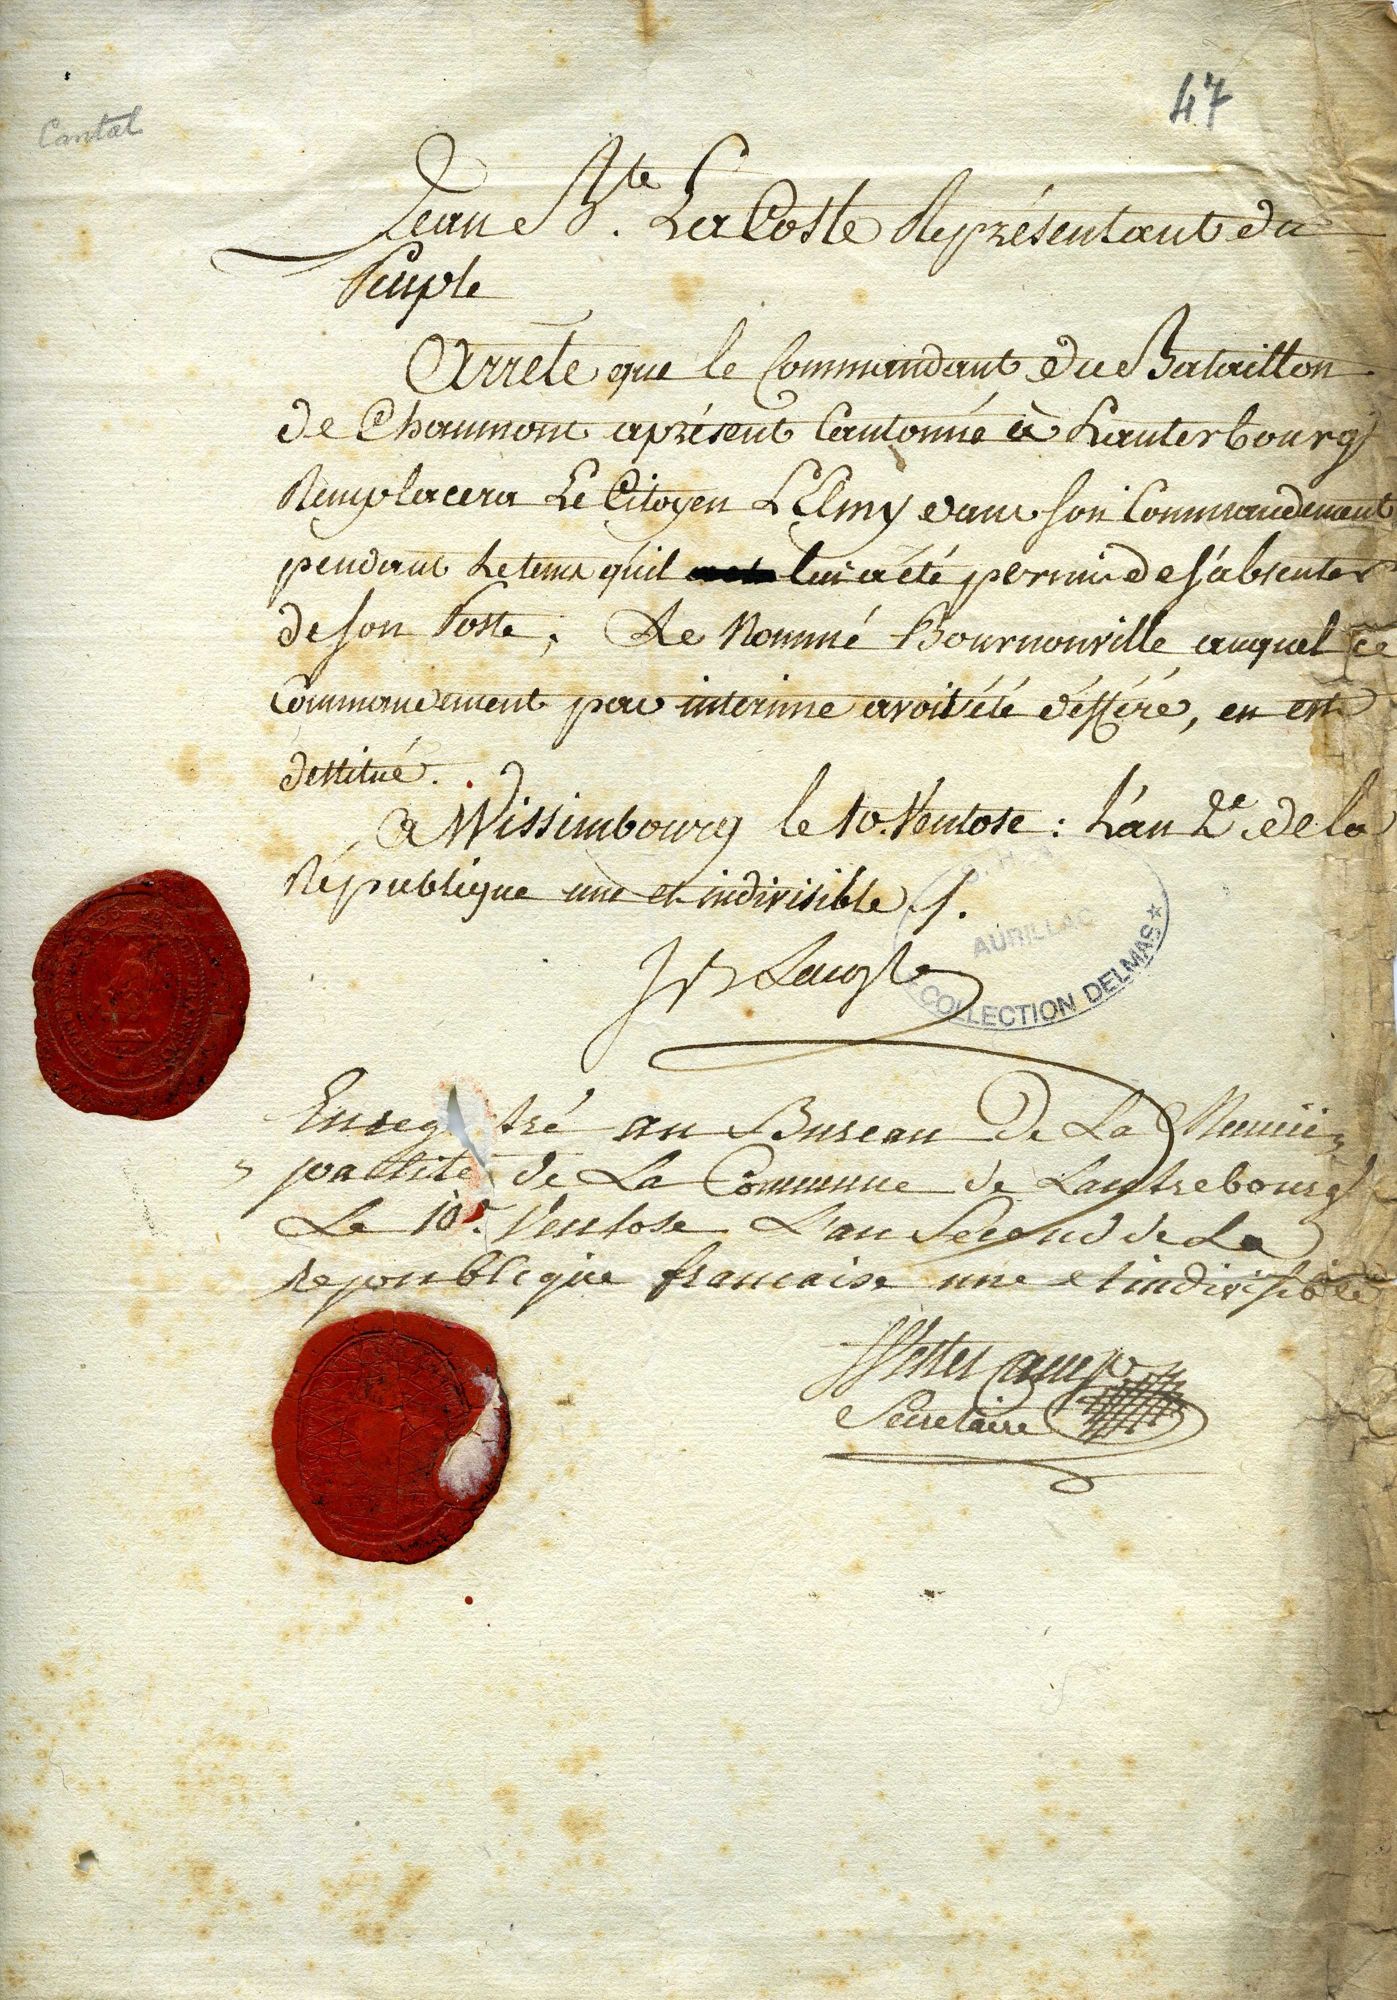 47
Cantal
Jean Bte. La Coste Représentant du
Peuple
Arrête que le Commandant du Bataillon
de Chaumont aprésent Cantonné à Lauterbourg
Remplacera Le Citoyen L'Elmy dans son Commandement
pendant Letems qu'il lui a été permis de s'absenter
de son Poste, Le Nommé Bournonville auquel ce
Commandement par interime avoit été défféré, en est
destitué.
A Wissimbourg le 10. Ventose : L'an 2e. de la
République une et indivisible ∫.
JB Lacoste
AURILLAC
COLLECTION DELMAS
Enregistré au Bureau De La Munici-
palité de La Commune de Lautrebourg
Le 10e. Ventose L'an Second de La
republique francaise une et indivisible
Secretaire